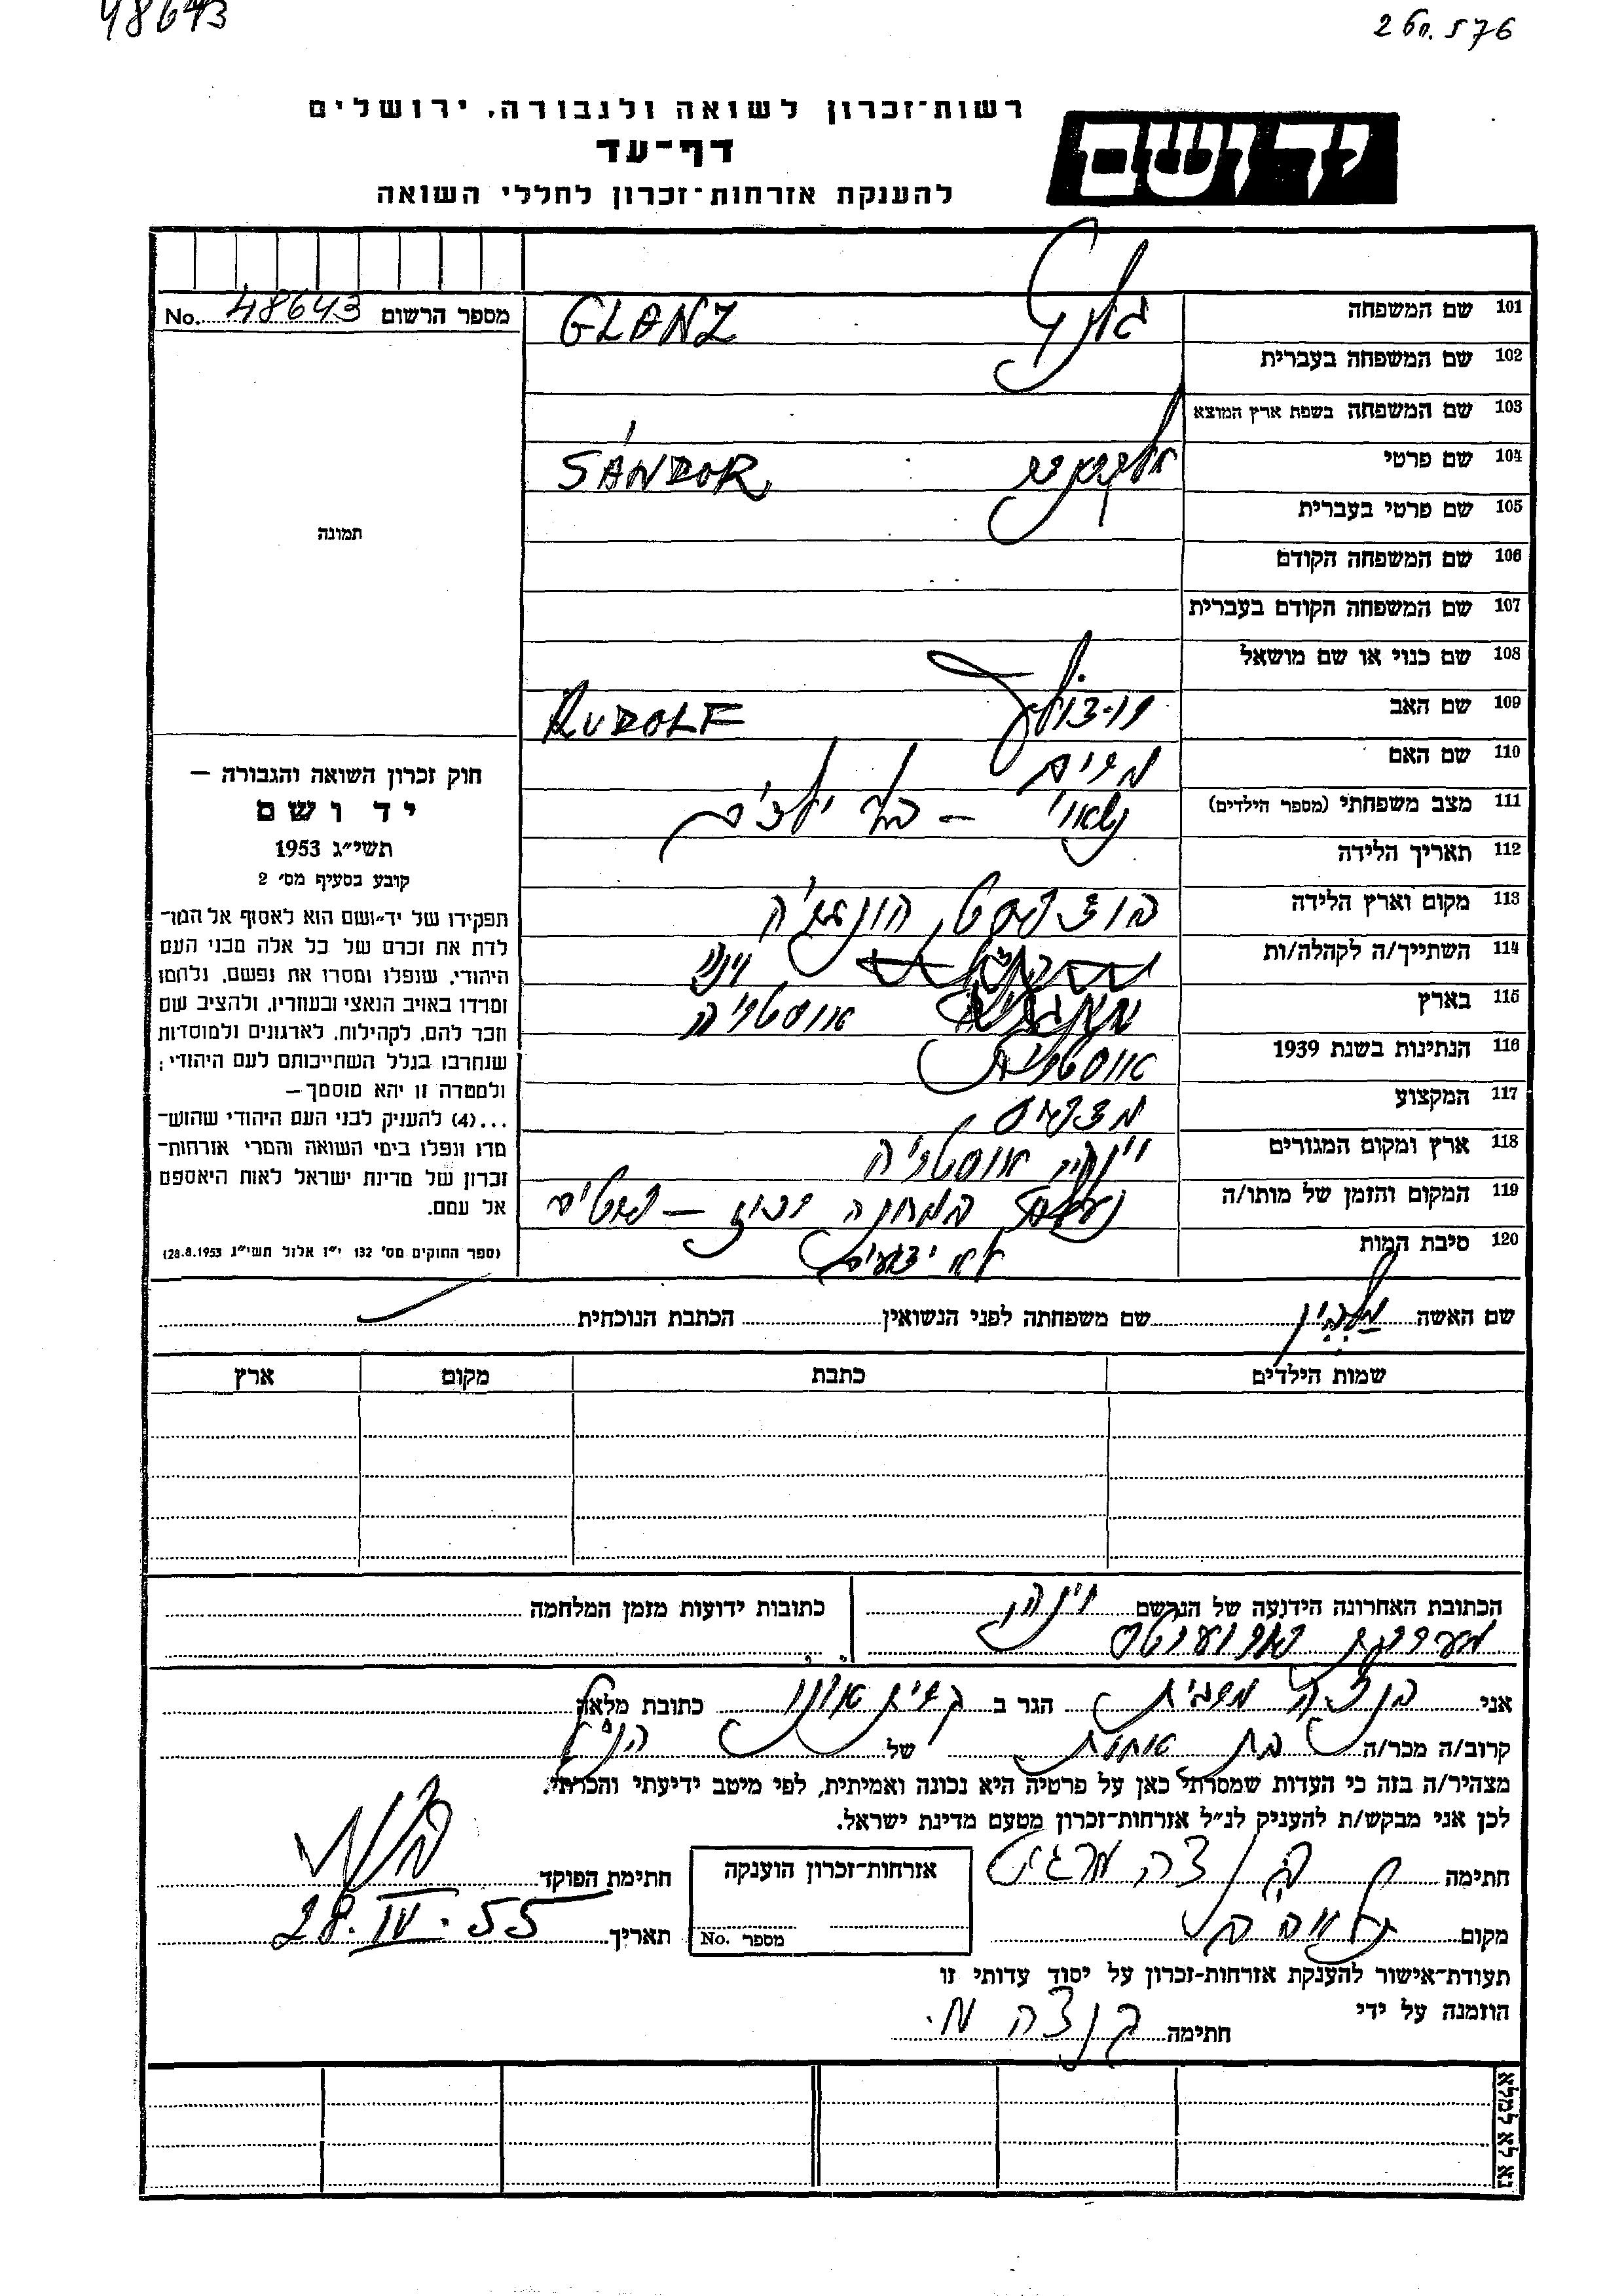 48643
576
רשות־זכרון לשואה ולגבורה, ירושלים
דף־עד
להענקת אזרחות־זכרון לחללי השואה
יד ושם
מספר הרשום 48643 No.
תמונה
101 שם המשפחה גלנץ GLANZ
102 שם המשפחה בעברית
103 שם המשפחה בשפת ארץ המוצא
104 שם פרטי אלכסנדר SÁNDOR
105 שם פרטי בעברית
106 שם המשפחה הקודם
107 שם המשפחה הקודם בעברית
108 שם כנוי או שם מושאל
109 שם האב רודולף RUDOLF
110 שם האם מרים
111 מצב משפחתי (מספר הילדים) נשאוי – בלי ילדים
112 תאריך הלידה
113 מקום וארץ הלידה בודפסט, הונגריה
114 השתייך/ה לקהלה/ות וינה
115 בארץ אוסטריה
116 הנתינות בשנת 1939 אוסטרית
117 המקצוע
118 ארץ ומקום המגורים אוסטריה
119 המקום והזמן של מותו/ה נעלם במחנה – פרטים
120 סיבת המות לא ידועים
חוק זכרון השואה והגבורה –
יד ושם
תשי״ג 1953
קובע בסעיף מס׳ 2
תפקידו של יד־ושם הוא לאסוף אל המו־
לדת את זכרם של כל אלה מבני העם
היהודי, שנפלו ומסרו את נפשם, נלחמו
ומרדו באויב הנאצי ובעוזריו, ולהציב שם
וזכר להם, לקהילות, לארגונים ולמוסדות
שנחרבו בגלל השתייכותם לעם היהודי;
ולמטרה זו יהא מוסמך –
...(4) להעניק לבני העם היהודי שהוש־
מדו ונפלו בימי השואה והמרי אזרחות־
זכרון של מדינת ישראל לאות היאספם
אל עמם.
(ספר החוקים מס׳ 132 י״ז אלול תשי״ג 28.8.1953)
שם האשה שם משפחתה לפני הנשואין הכתבת הנוכחית
שמות הילדים כתבת מקום ארץ
הכתובת האחרונה הידועה של הנרשם וינה
כתובות ידועות מזמן המלחמה
אני בנצה מרגית הגר ב קרית אונו כתובת מלאה
קרוב/ה מכר/ה בת אחות של הנ״ל
מצהיר/ה בזה כי העדות שמסרתי כאן על פרטיה היא נכונה ואמיתית, לפי מיטב ידיעתי והכרתי.
לכן אני מבקש/ת להעניק לנ״ל אזרחות־זכרון מטעם מדינת ישראל.
חתימה בנצה מרגית
אזרחות־זכרון הוענקה
מספר No.
חתימת הפוקד
מקום
תאריך 28. IV. 55
תעודת־אישור להענקת אזרחות־זכרון על יסוד עדותי זו
הוזמנה על ידי
חתימה בנצה מ.
נא לא למלא